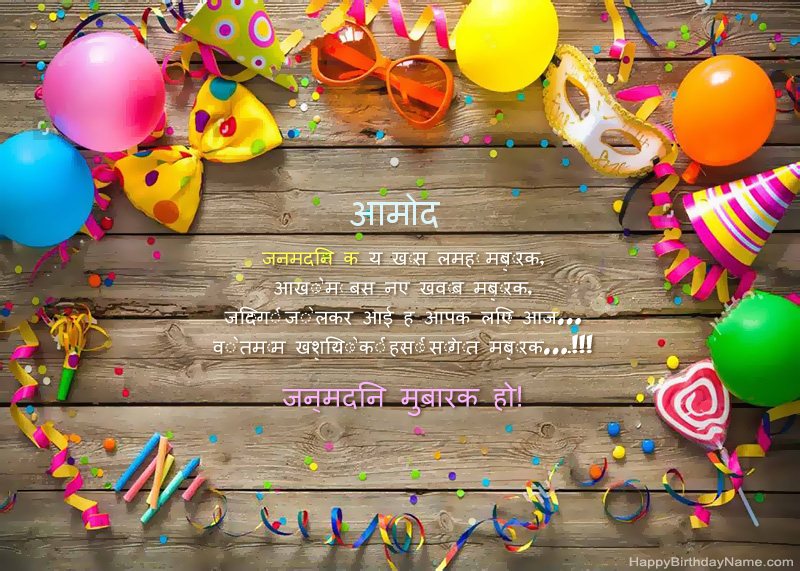 आमोद
जनमदनि क य खास लमहा मबारक,
आखो मे बस नए खवाब मबारक,
जदिगी जो लेकर आई ह आपक लएि आज...
वो तमाम खशयिो की हसी सौगात मबारक...!!!
जन्मदनि मुबारक हो!
HappyBirthdayName.com